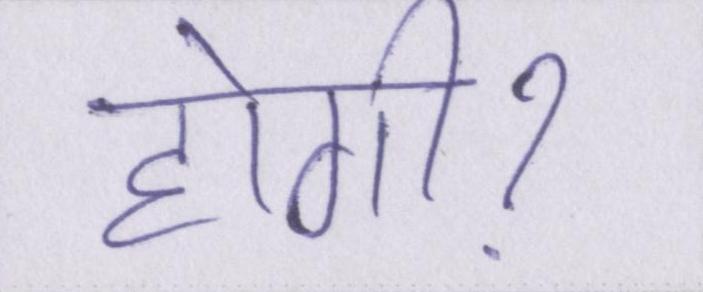 होगी?